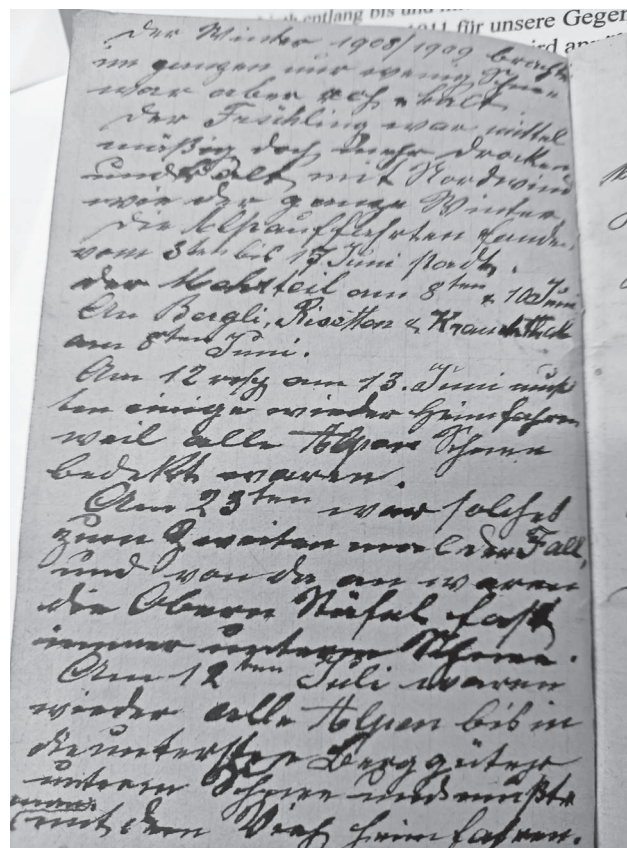 entlang bis und
1911 für unsere Gegen
wird an
Der Winter 1908/1909 brachte
im ganzen nur wenig Schnee
war aber kalt.
Der Frühling war mittel
mäßig doch mehr drocken
und kalt mit Nordwind
wie der ganze Winter.
Die Alpauffahrten fanden
vom 3ten bis 13 Juni statt.
der Mehrteil am 8ten & 10 Juni
An Bergli, Risetten &
am 8ten Juni.
Am 12 resp am 13. Juni muß
ten einige wieder heimfahren
weil alle Alpen Schnee
bedekt waren.
Am 23ten war solches
zum Zweiten mal der Fall,
und von da an waren
die Obern Stäfel fast
immer unterm Schnee.
Am 12ten Juli waren
wieder alle Alpen bis in
die untersten Berggüter
unterm Schnee und mußte
mit dem Vieh heim fahren.